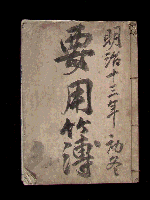 明治十三年 初冬
要用簿